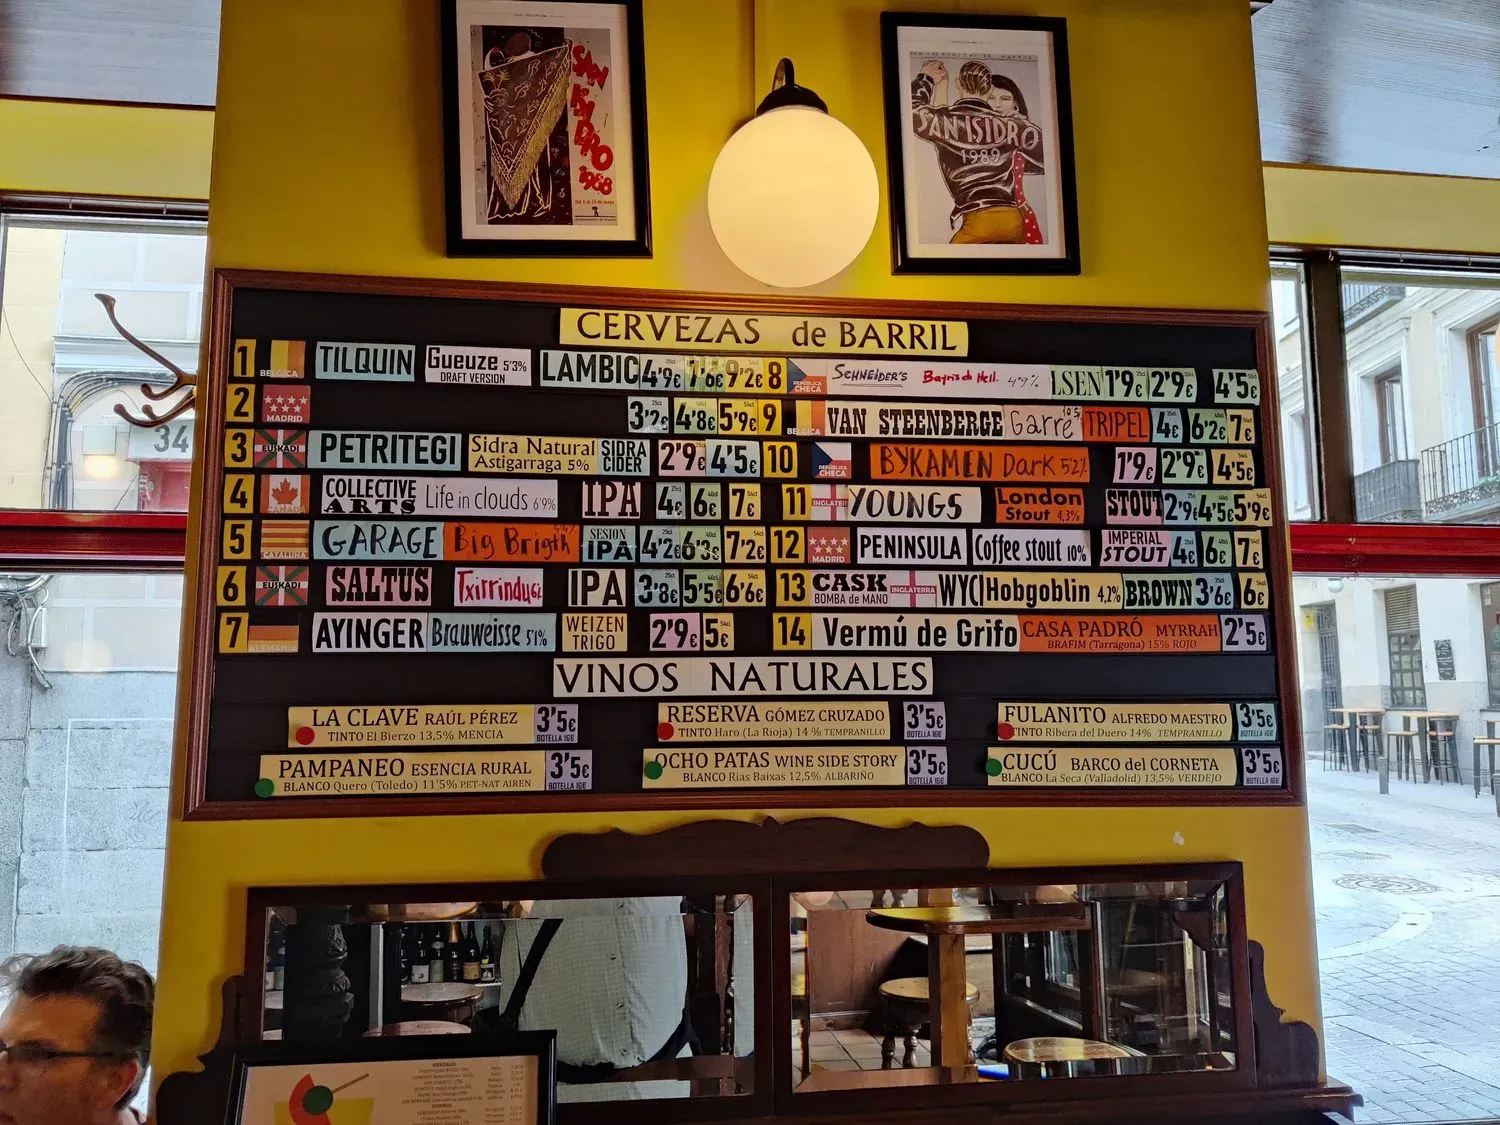 SAN
ISI
DRO
1988
SAN ISIDRO
1989
34
CERVEZAS de BARRIL
1 BELGICA TILQUIN Gueuze 5'3% DRAFT VERSION LAMBIC 4'9€ 7'6€ 9'2€
8 REPÚBLICA CHECA SCHNEIDER'S Bayrisch Hell. 4'9% LSEN 1'9€ 2'9€ 4'5€
2 MADRID 3'2€ 4'8€ 5'9€
9 BELGICA VAN STEENBERGE Garre TRIPEL 4€ 6'2€ 7€
3 EUSKADI PETRITEGI Sidra Natural Astigarraga 5% SIDRA CIDER 2'9€ 4'5€
10 REPÚBLICA CHECA BYKAMEN Dark 5'2% 1'9€ 2'9€ 4'5€
4 CANADA COLLECTIVE ARTS Life in clouds 6'9% IPA 4€ 6€ 7€
11 INGLATER YOUNGS London Stout 4,3% STOUT 2'9€ 4'5€ 5'9€
5 CATALUÑA GARAGE Big Brigth SESION IPA 4'2€ 6'3€ 7'2€
12 MADRID PENINSULA Coffee stout 10% IMPERIAL STOUT 4€ 6€ 7€
6 EUSKADI SALTUS Txirrindu IPA 3'8€ 5'5€ 6'6€
13 CASK BOMBA de MANO INGLATERRA WYC Hobgoblin 4,2% BROWN 3'6€ 6€
7 ALEMANIA AYINGER Brauweisse 5'1% WEIZEN TRIGO 2'9€ 5€
14 Vermú de Grifo CASA PADRÓ MYRRAH BRAFIM (Tarragona) 15% ROJO 2'5€
VINOS NATURALES
LA CLAVE RAÚL PÉREZ 3'5€
TINTO El Bierzo 13,5% MENCIA BOTELLA 16€
RESERVA GÓMEZ CRUZADO 3'5€
TINTO Haro (La Rioja) 14 % TEMPRANILLO BOTELLA 16€
FULANITO ALFREDO MAESTRO 3'5€
TINTO Ribera del Duero 14% TEMPRANILLO BOTELLA 16€
PAMPANEO ESENCIA RURAL 3'5€
BLANCO Quero (Toledo) 11'5% PET-NAT AIREN BOTELLA 16€
OCHO PATAS WINE SIDE STORY 3'5€
BLANCO Rias Baixas 12,5% ALBARIÑO BOTELLA 16€
CUCÚ BARCO del CORNETA 3'5€
BLANCO La Seca (Valladolid) 13,5% VERDEJO BOTELLA 16€